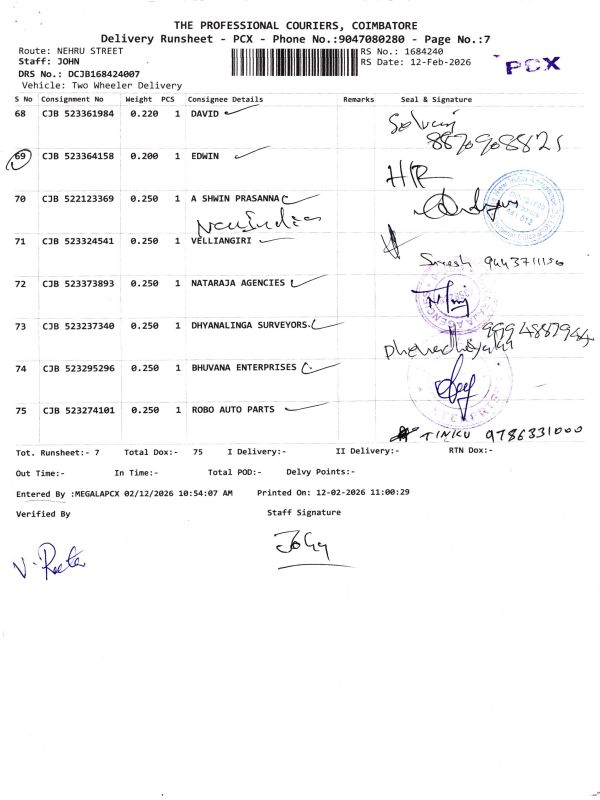 THE PROFESSIONAL COURIERS, COIMBATORE
Delivery Runsheet - PCX - Phone No.:9047080280 - Page No.:7
Route: NEHRU STREET RS No.: 1684240
Staff: JOHN RS Date: 12-Feb-2026
PCX
DRS No.: DCJB168424007
Vehicle: Two Wheeler Delivery
S No Consignment No Weight PCS Consignee Details Remarks Seal & Signature
68 CJB 523361984 0.220 1 DAVID
8870908825
69 CJB 523364158 0.200 1 EDWIN
H/R
70 CJB 522123369 0.250 1 A SHWIN PRASANNA
New India
71 CJB 523324541 0.250 1 VELLIANGIRI
Suresh 9443711150
72 CJB 523373893 0.250 1 NATARAJA AGENCIES
73 CJB 523237340 0.250 1 DHYANALINGA SURVEYORS.
9994887944
74 CJB 523295296 0.250 1 BHUVANA ENTERPRISES
75 CJB 523274101 0.250 1 ROBO AUTO PARTS
TINKU 9786331000
Tot. Runsheet:- 7 Total Dox:- 75 I Delivery:- II Delivery:- RTN Dox:-
Out Time:- In Time:- Total POD:- Delvy Points:-
Entered By :MEGALAPCX 02/12/2026 10:54:07 AM Printed On: 12-02-2026 11:00:29
Verified By Staff Signature
John